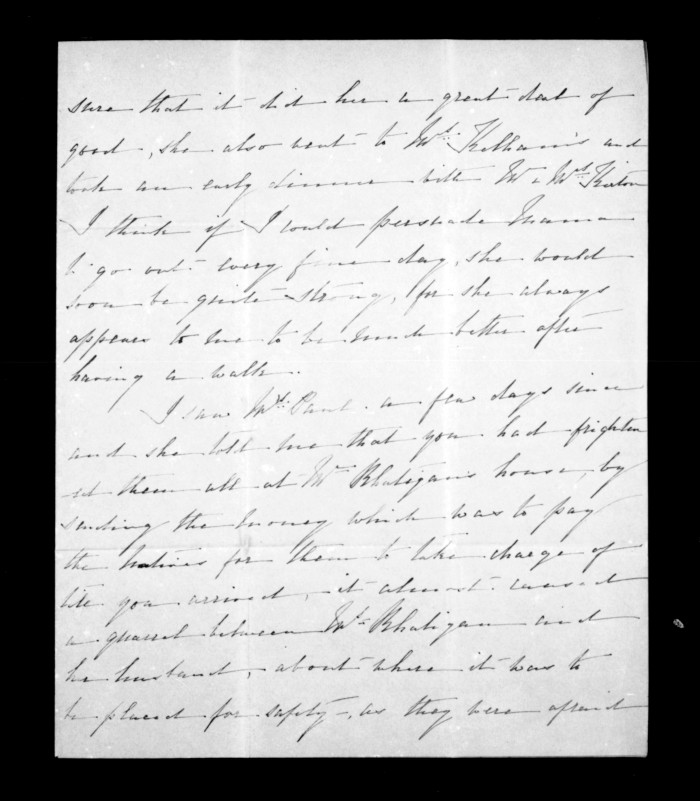 sure that it did her a great deal of
good, she also went to Mrs. Kelham's and
took an early dinner with Mr & Mrs. Kirton
I think if I could persuade Mama
to go out every fine day, she would
soon be quite strong, for she always
appears to me to be much better after
having a walk.
I saw Mrs. Paul a few days since
and she told me that you had frighten
-ed them all at Mrs Rhatigan's house, by
sending the money which was to pay
the natives for them to take charge of
till you arrived, it almost caused
a quarrel between Mrs. Rhatigan and
her husband, about where it was to
be placed for safety, as they were afraid